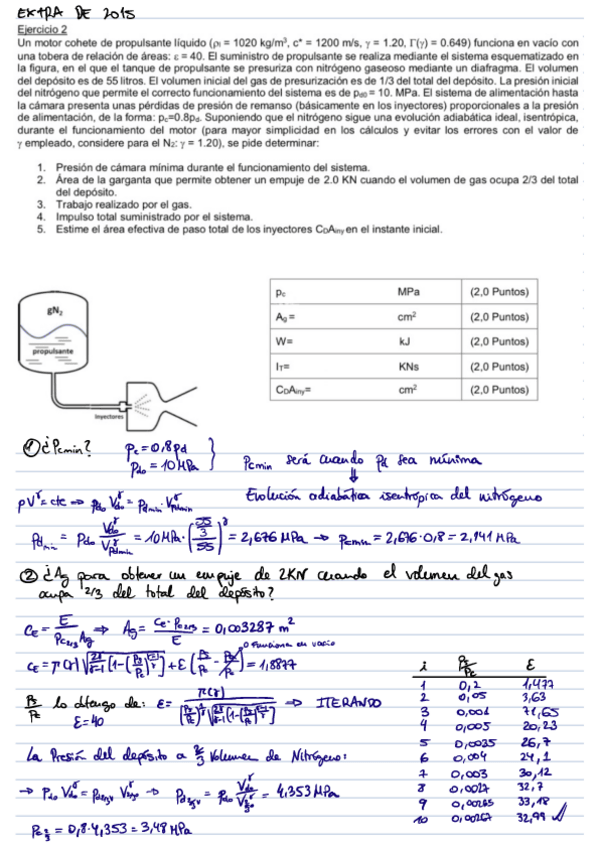 EXTRA DE 2015
Ejercicio 2
Un motor cohete de propulsante líquido (ρₗ = 1020 kg/m³, c* = 1200 m/s, γ = 1.20, Γ(γ) = 0.649) funciona en vacío con
una tobera de relación de áreas: ε = 40. El suministro de propulsante se realiza mediante el sistema esquematizado en
la figura, en el que el tanque de propulsante se presuriza con nitrógeno gaseoso mediante un diafragma. El volumen
del depósito es de 55 litros. El volumen inicial del gas de presurización es de 1/3 del total del depósito. La presión inicial
del nitrógeno que permite el correcto funcionamiento del sistema es de pd0 = 10. MPa. El sistema de alimentación hasta
la cámara presenta unas pérdidas de presión de remanso (básicamente en los inyectores) proporcionales a la presión
de alimentación, de la forma: pc=0.8pd. Suponiendo que el nitrógeno sigue una evolución adiabática ideal, isentrópica,
durante el funcionamiento del motor (para mayor simplicidad en los cálculos y evitar los errores con el valor de
γ empleado, considere para el N₂: γ = 1.20), se pide determinar:
1. Presión de cámara mínima durante el funcionamiento del sistema.
2. Área de la garganta que permite obtener un empuje de 2.0 KN cuando el volumen de gas ocupa 2/3 del total
del depósito.
3. Trabajo realizado por el gas.
4. Impulso total suministrado por el sistema.
5. Estime el área efectiva de paso total de los inyectores CDAiny en el instante inicial.
gN₂
propulsante
Inyectores
pc MPa (2,0 Puntos)
Ag = cm² (2,0 Puntos)
W= kJ (2,0 Puntos)
IT= KNs (2,0 Puntos)
CDAiny= cm² (2,0 Puntos)
① ¿Pcmin? pc = 0,8 pd
pd0 = 10 MPa
Pcmin será cuando Pd sea mínima
Evolución adiabática isentrópica del nitrógeno
pV^γ = cte → pd0 Vd0^γ = pdmin · Vpdmin^γ
pdmin = pd0 Vd0^γ / Vpdmin^γ = 10 MPa · ((55/3)/55)^γ = 2,676 MPa → pcmin = 2,676 · 0,8 = 2,141 MPa
② ¿Ag para obtener un empuje de 2KN cuando el volumen del gas
ocupa 2/3 del total del depósito?
CE = E / (Pc2/3 Ag) → Ag = CE · Pc2/3 / E = 0,003287 m²
0 Funciona en vacío
CE = Γ(γ) √(2γ/(γ-1) [1-(Ps/Pc)^((γ-1)/γ)]) + ε (Ps/Pc - Pa/Pc) = 1,8877
Ps/Pc lo obtengo de: ε = Γ(γ) / ((Ps/Pc)^(1/γ) √(2γ/(γ-1) [1-(Ps/Pc)^((γ-1)/γ)])) → ITERANDO
ε = 40
i Ps/Pc ε
1 0,2 1,477
2 0,05 3,63
3 0,001 71,65
4 0,005 20,23
5 0,0035 26,7
6 0,004 24,1
7 0,003 30,12
8 0,0027 32,7
9 0,00265 33,18
10 0,00267 32,99 ✓
La Presión del depósito a 2/3 Volumen de Nitrógeno:
→ Pd0 Vd0^γ = pd2/3V V2/30^γ → Pd2/3V = pd0 Vd0^γ / V2/30^γ = 4,353 MPa
Pc2/3 = 0,8 · 4,353 = 3,48 MPa